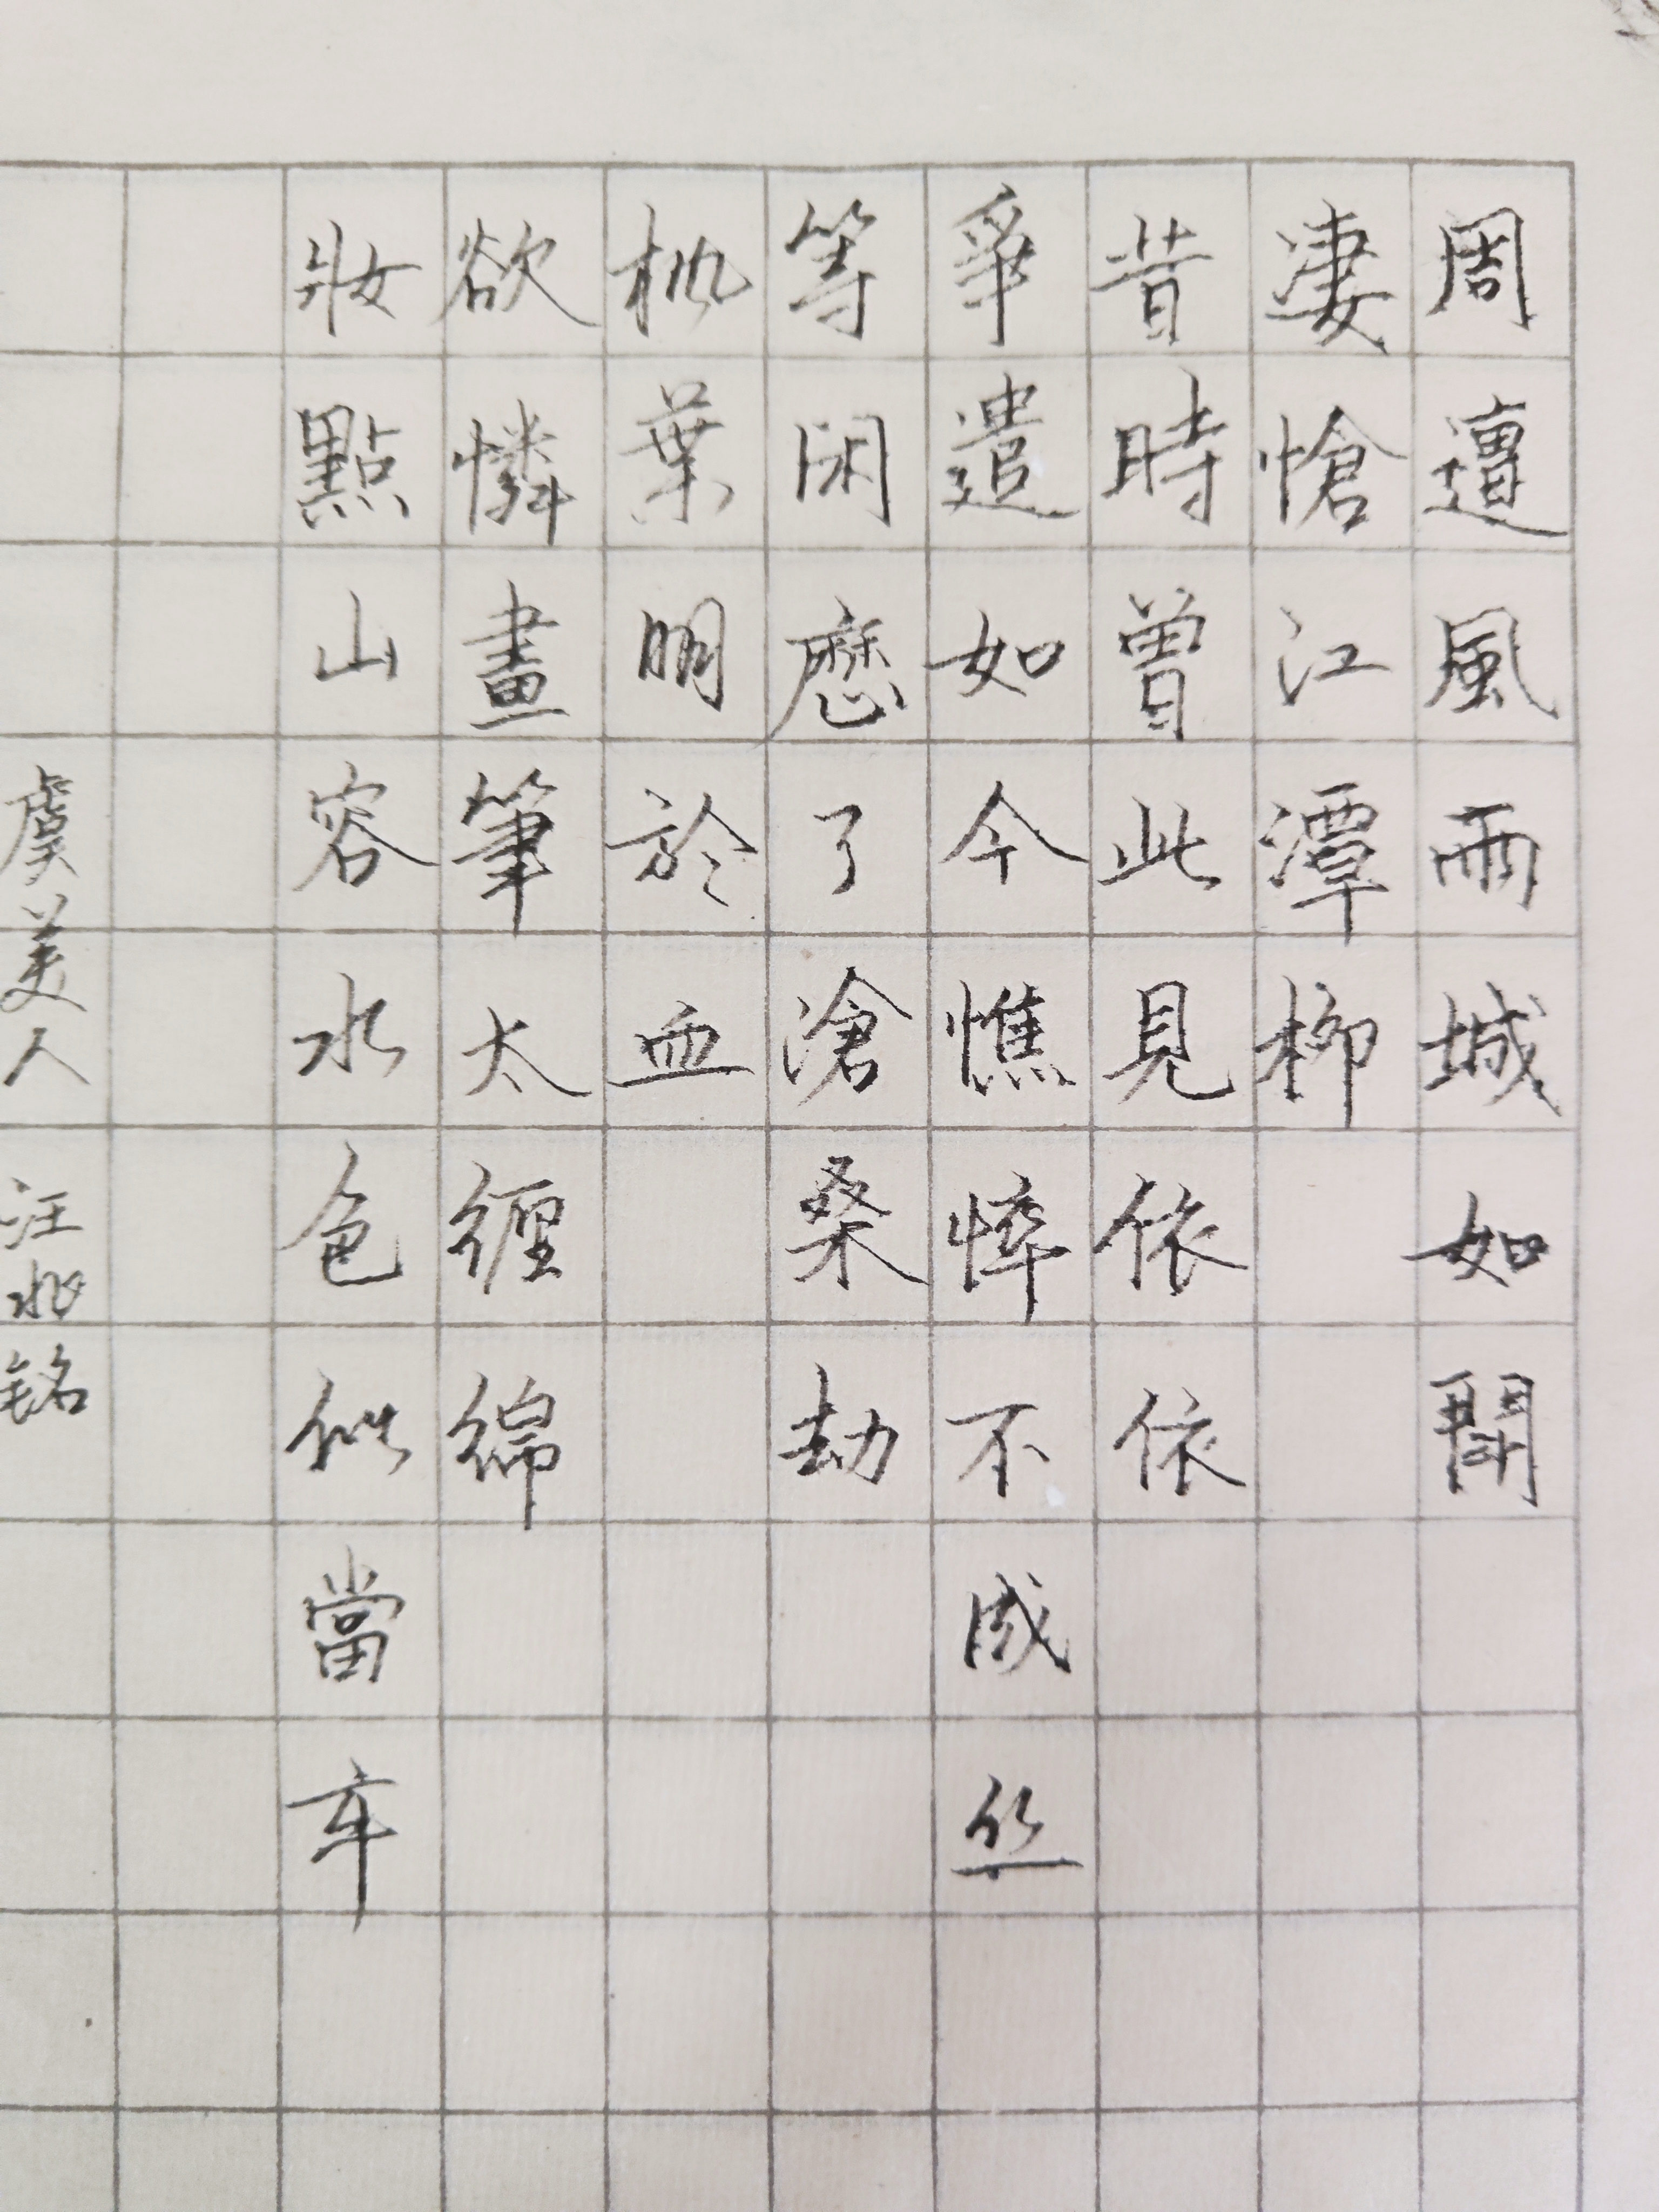 周遭風雨城如閗
凄愴江潭柳
昔時曾此見依依
爭遣如今憔悴不成丝
等閑歷了滄桑劫
枫葉明於血
欲憐畫筆太纏綿
妝點山容水色似當年
虞美人 汪兆铭